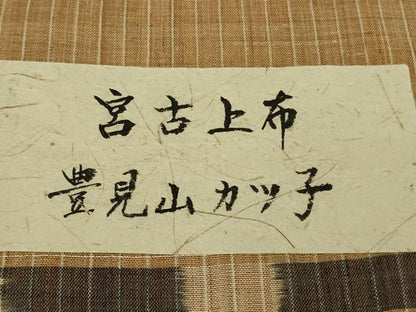 宮古上布
豊見山カツ子